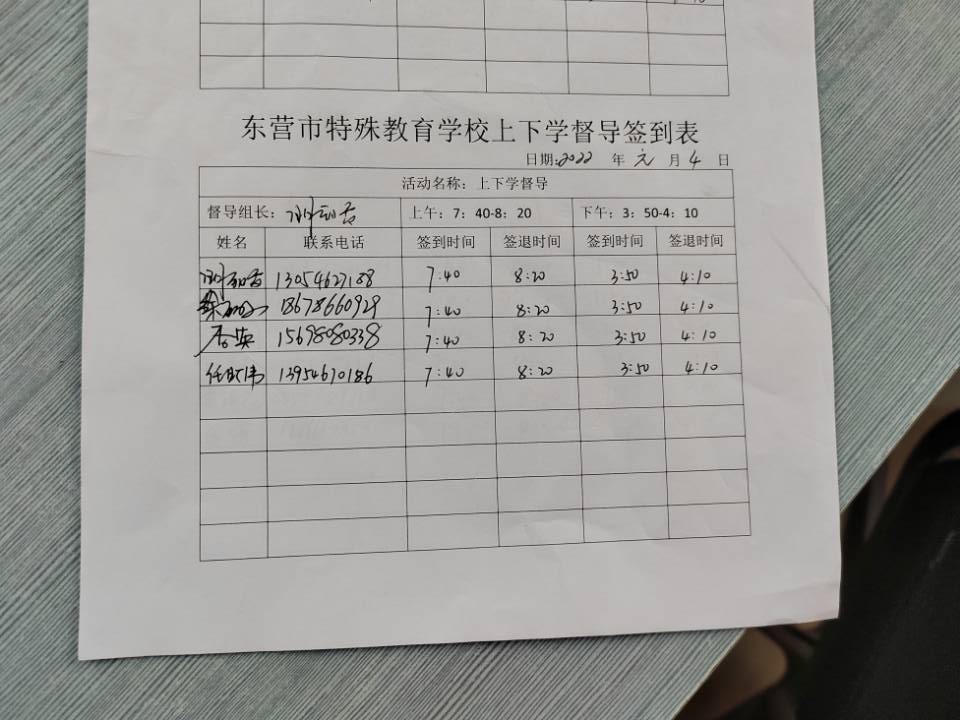 东营市特殊教育学校上下学督导签到表
日期:2022 年 元 月 4 日
活动名称：上下学督导
督导组长： 上午：7：40-8：20 下午：3：50-4：10
姓名 联系电话 签到时间 签退时间 签到时间 签退时间
13054627188 7:40 8:20 3:50 4:10
18678660929 7:40 8:20 3:50 4:10
15698080338 7:40 8:20 3:50 4:10
13954670186 7:40 8:20 3:50 4:10